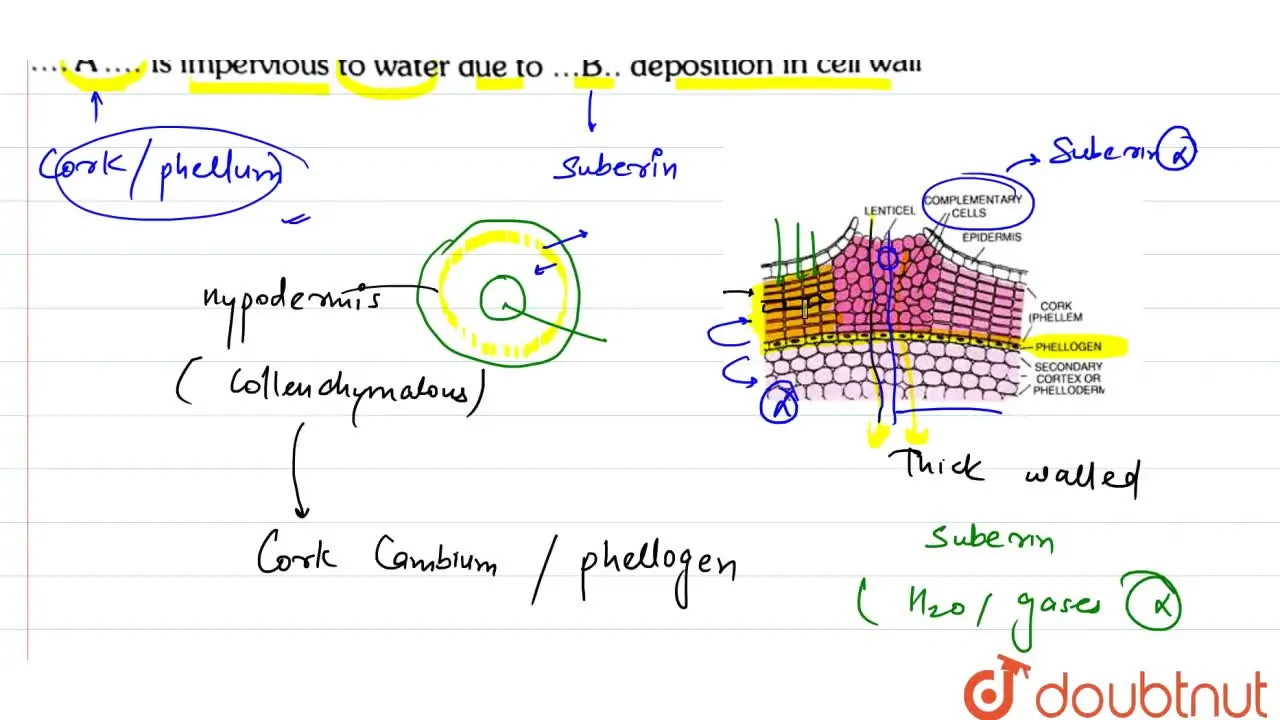 .... A .... is impervious to water due to ...B.. deposition in cell wall
Cork/phellum
Suberin
Suberin α
LENTICEL
COMPLEMENTARY
CELLS
EPIDERMIS
Hypodermis
(Collenchymatous)
CORK
(PHELLEM
PHELLOGEN
SECONDARY
CORTEX OR
PHELLODERM
α
Thick walled
Cork Cambium / phellogen
Suberin
( H2O / gases α
doubtnut